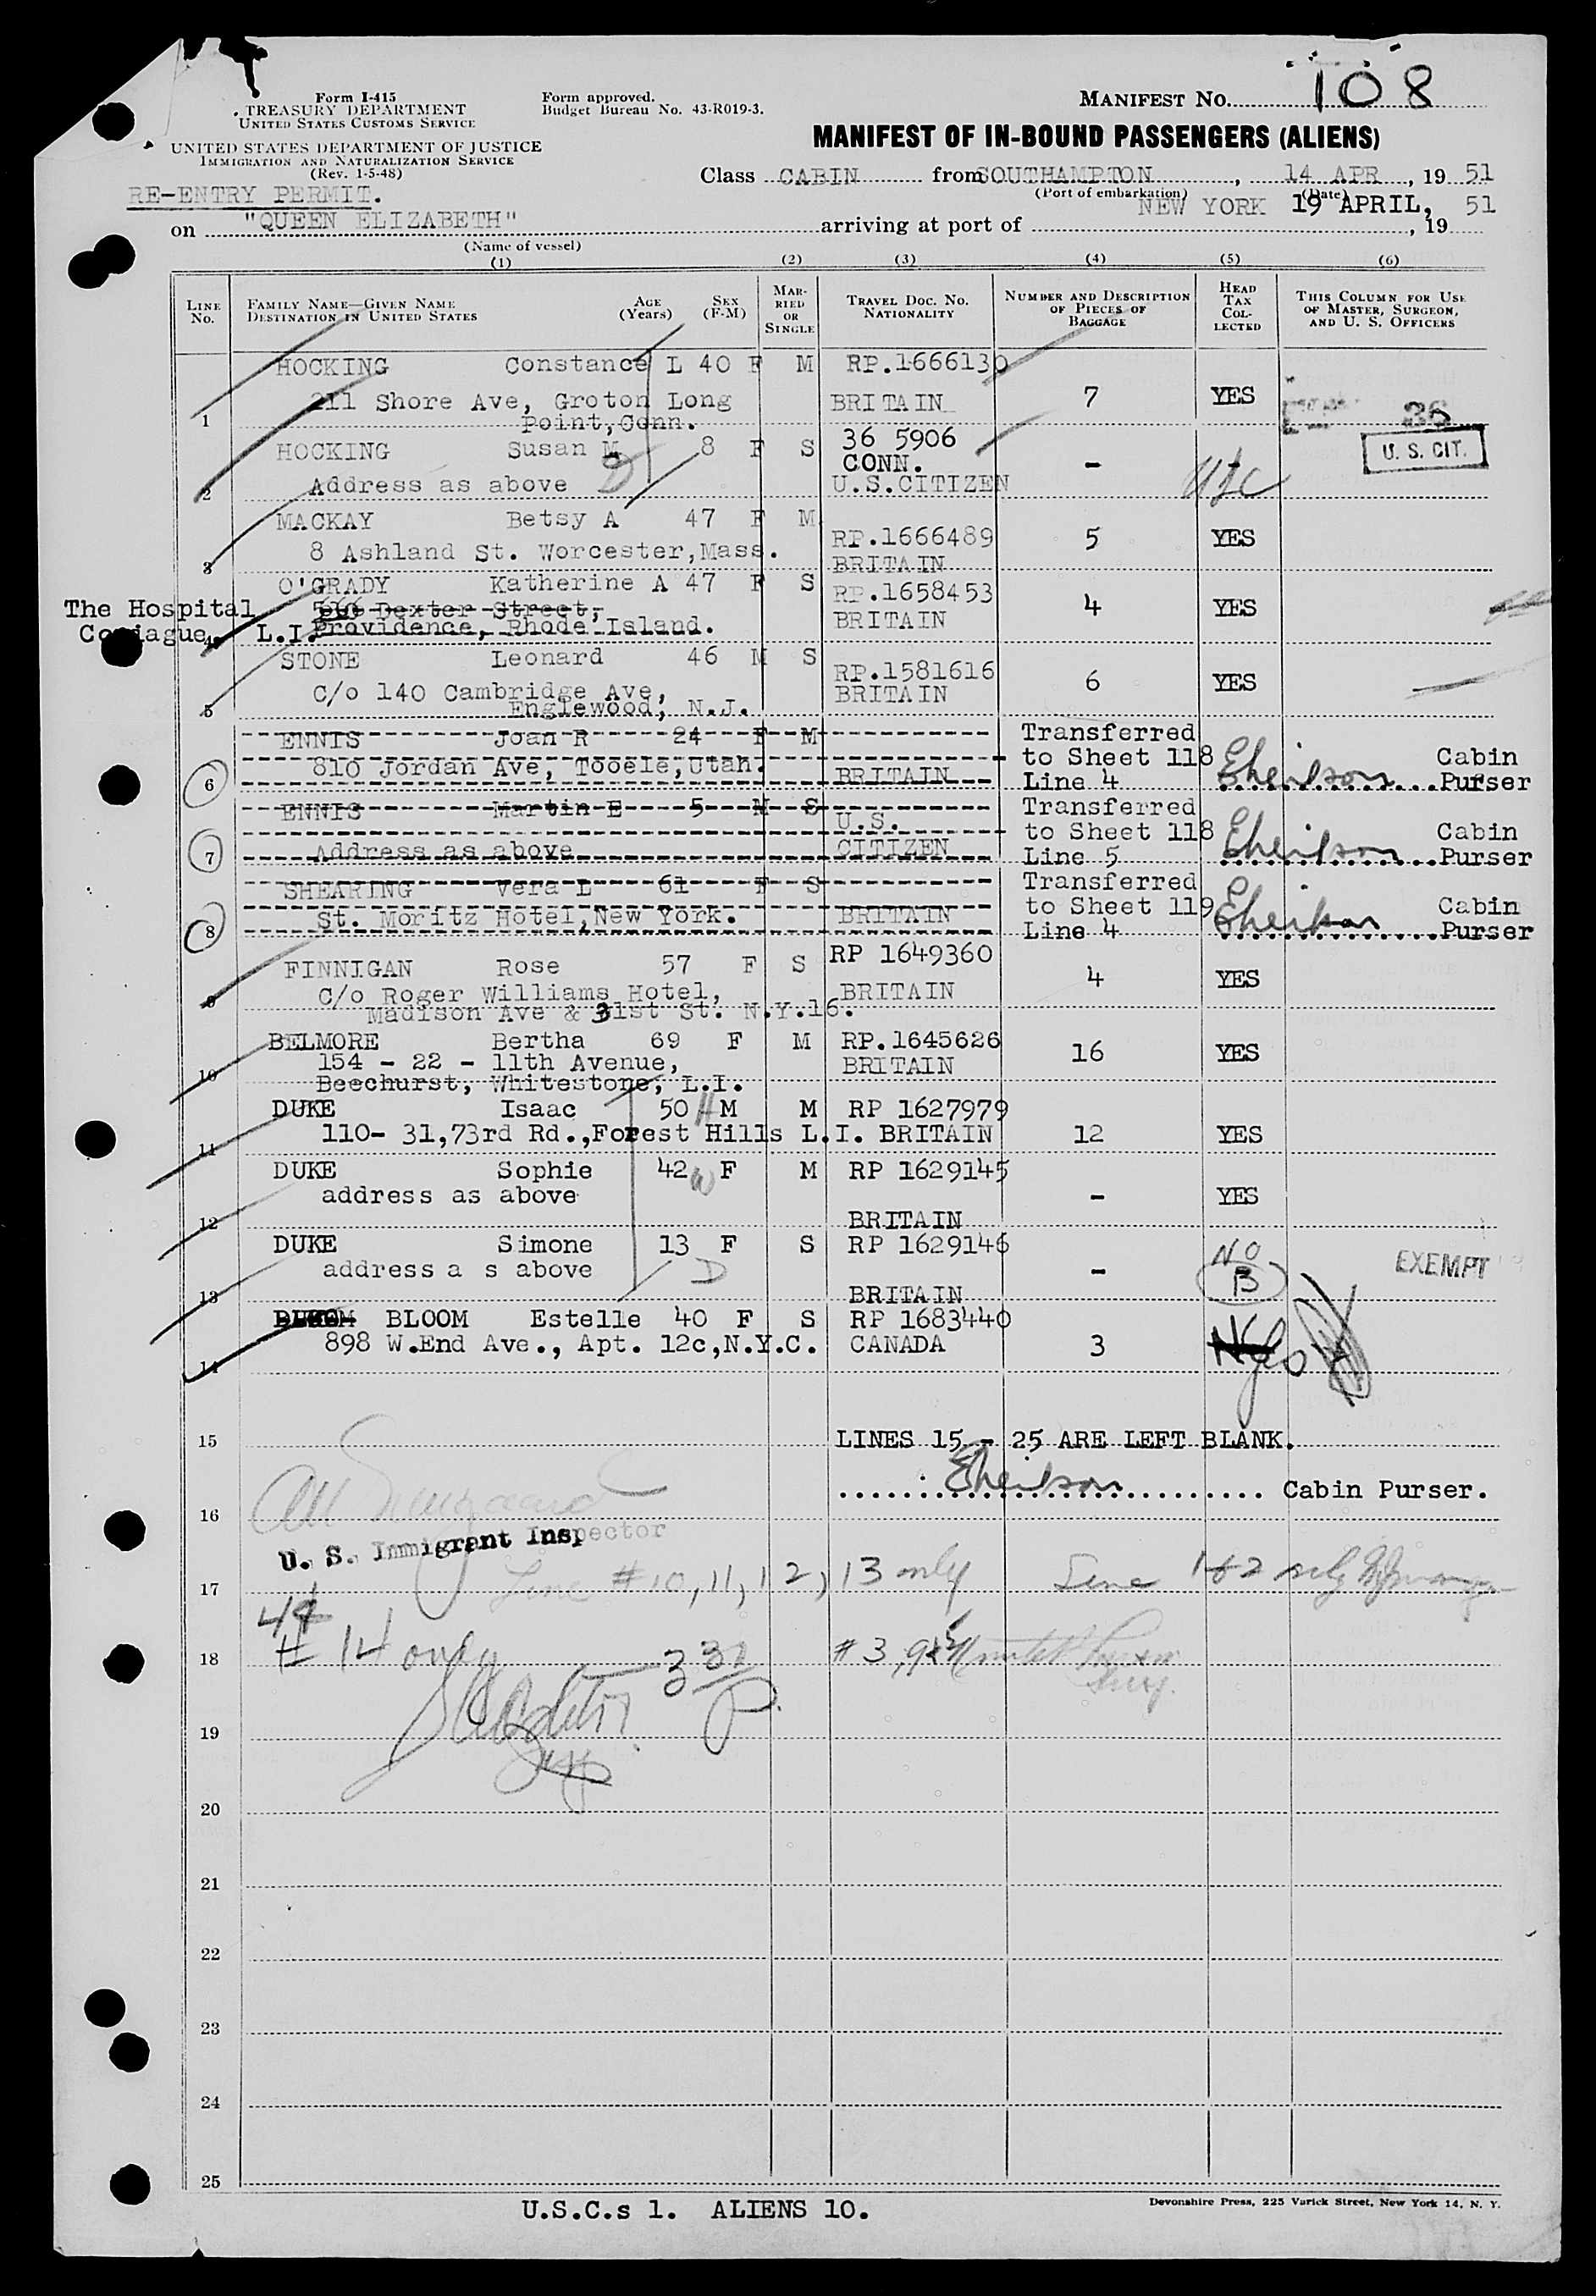 Form I-415
TREASURY DEPARTMENT
UNITED STATES CUSTOMS SERVICE
UNITED STATES DEPARTMENT OF JUSTICE
IMMIGRATION AND NATURALIZATION SERVICE
(Rev. 1-5-48)
Form approved.
Budget Bureau No. 43-R019-3.
MANIFEST NO. 108
MANIFEST OF IN-BOUND PASSENGERS (ALIENS)
Class CABIN from SOUTHAMPTON, 14 APR, 19 51
(Port of embarkation) (Date)
RE-ENTRY PERMIT.
on "QUEEN ELIZABETH" arriving at port of NEW YORK 19 APRIL, 19 51
(Name of vessel)
(1) (2) (3) (4) (5) (6)
LINE NO. FAMILY NAME—GIVEN NAME DESTINATION IN UNITED STATES AGE (Years) SEX (F-M) MARRIED OR SINGLE TRAVEL DOC. NO. NATIONALITY NUMBER AND DESCRIPTION OF PIECES OF BAGGAGE HEAD TAX COLLECTED THIS COLUMN FOR USE OF MASTER, SURGEON, AND U. S. OFFICERS
HOCKING Constance L 40 F M RP.1666130
1 211 Shore Ave, Groton Long BRITAIN 7 YES
Point, Conn.
HOCKING Susan M 8 F S 36 5906
CONN. - U. S. CIT.
2 Address as above U.S.CITIZEN
MACKAY Betsy A 47 F M
RP.1666489 5 YES
3 8 Ashland St. Worcester,Mass. BRITAIN
O'GRADY Katherine A 47 F S RP.1658453
The Hospital Dexter Street, BRITAIN 4 YES
4 L.I. Providence, Rhode Island.
STONE Leonard 46 M S RP.1581616
C/o 140 Cambridge Ave, BRITAIN 6 YES
5 Englewood, N.J.
ENNIS Joan R 24 F M Transferred
810 Jordan Ave, Tooele,Utah. to Sheet 118 Cabin
6 BRITAIN Line 4 Purser
ENNIS Martin E 5 M S U.S. Transferred
to Sheet 118 Cabin
7 Address as above CITIZEN Line 5 Purser
SHEARING Vera L 61 F S Transferred
St. Moritz Hotel,New York. BRITAIN to Sheet 119 Cabin
8 Line 4 Purser
FINNIGAN Rose 57 F S RP 1649360
C/o Roger Williams Hotel, BRITAIN 4 YES
9 Madison Ave & 31st St. N.Y.16.
BELMORE Bertha 69 F M RP.1645626
154 - 22 - 11th Avenue, BRITAIN 16 YES
10 Beechurst, Whitestone, L.I.
DUKE Isaac 50 M M RP 1627979
11 110- 31,73rd Rd.,Forest Hills L.I. BRITAIN 12 YES
DUKE Sophie 42 F M RP 1629145
address as above - YES
12 BRITAIN
DUKE Simone 13 F S RP 1629146 NO
address a s above - B EXEMPT
13 BRITAIN
BLOOM Estelle 40 F S RP 1683440
14 898 W.End Ave., Apt. 12c,N.Y.C. CANADA 3
15 LINES 15 - 25 ARE LEFT BLANK.
16 Cabin Purser.
U. S. Immigrant Inspector
17 Line #10, 11, 12, 13 only Line 1 & 2 only
18 # 14 only 3 30 P # 3, 9
19
20
21
22
23
24
25
U.S.C.s 1. ALIENS 10.
Devonshire Press, 225 Varick Street, New York 14, N. Y.